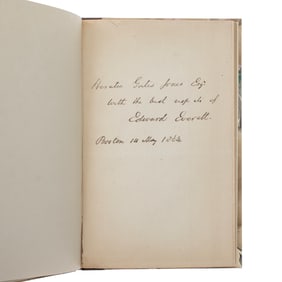 Horatio Gates Jones Esq
with the best respects of
Edward Everett.
Boston 14 May 1864